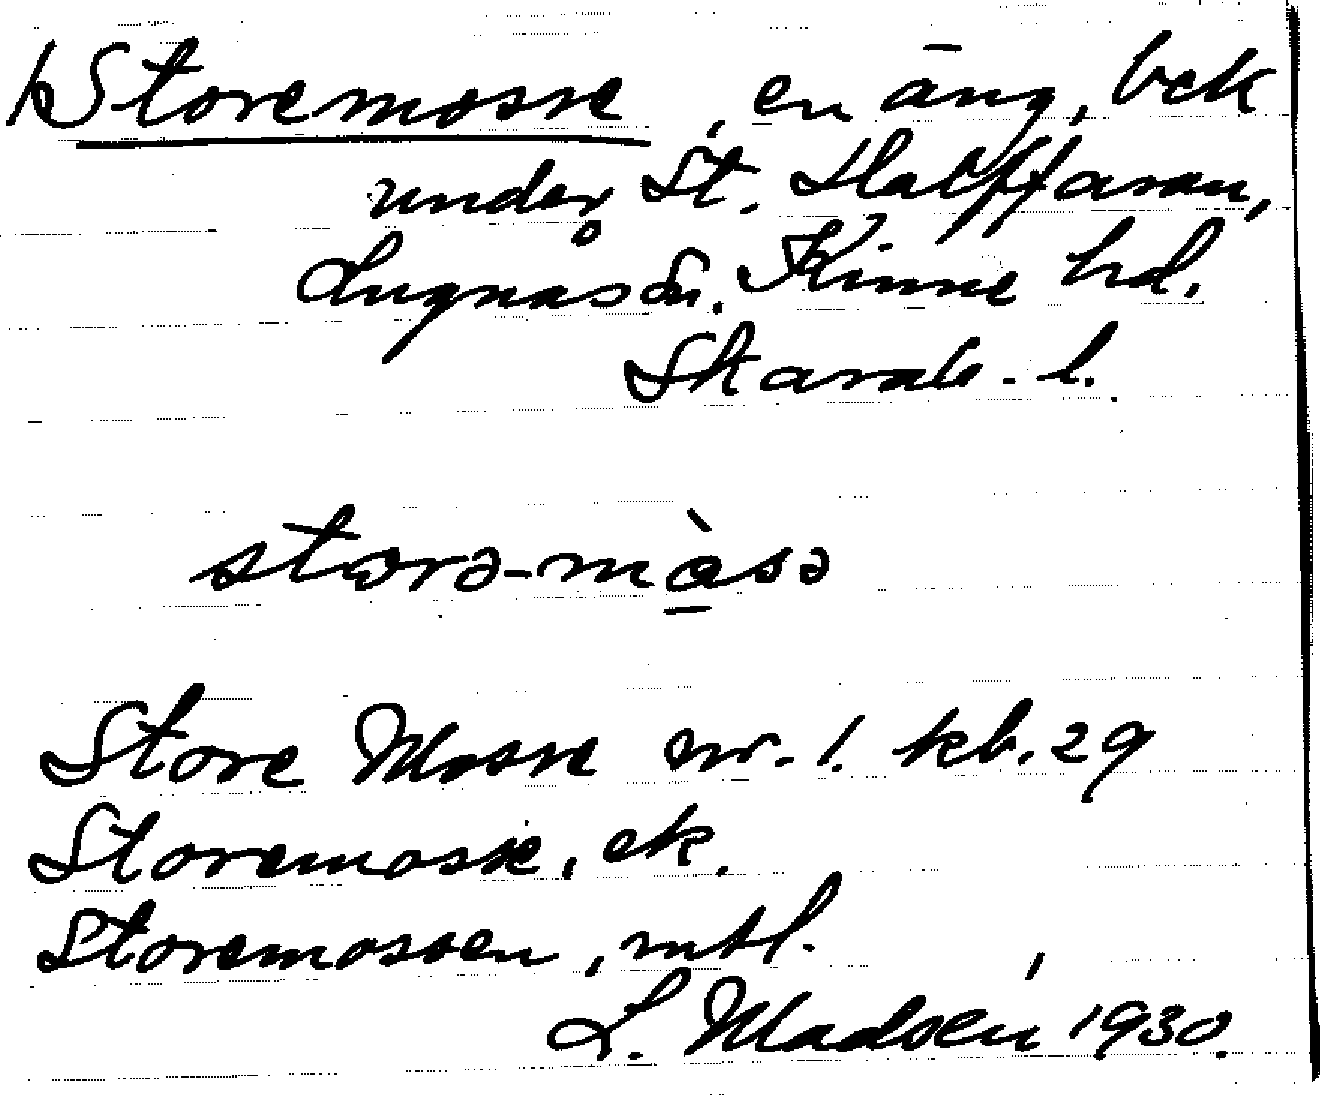 Storemosse, en äng, bek
under St. Halffaran,
Lugnås sn. Kinne hd.
Skarab. l.
storə-mòsə
Store Mosse nr. 1. kb. 29
Storemosse, ek.
Storemossen, mtl.
L. Madsén 1930.